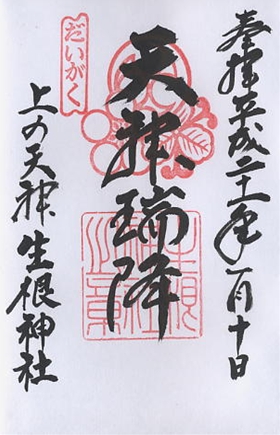 奉拝平成二十一年一月十日
天神瑞降
生根
神社
之章
だいがく
上の天神生根神社